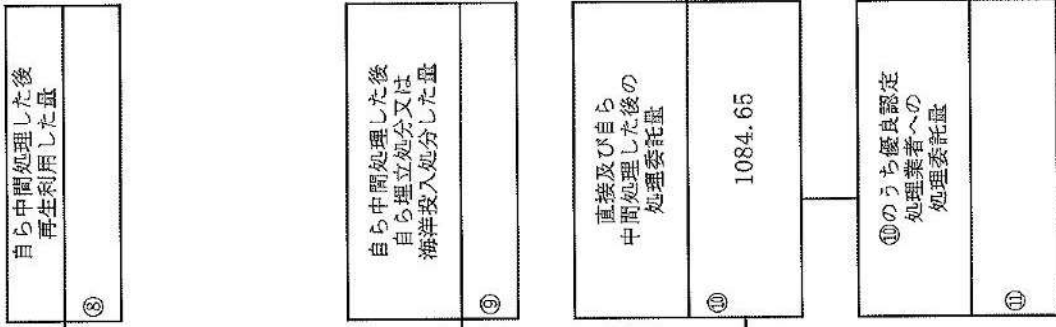 自ら中間処理した後
再生利用した量
⑧
自ら中間処理した後
自ら埋立処分又は
海洋投入処分した量
⑨
直接及び自ら
中間処理した後の
処理委託量
⑩
1084.65
⑩のうち優良認定
処理業者への
処理委託量
⑪